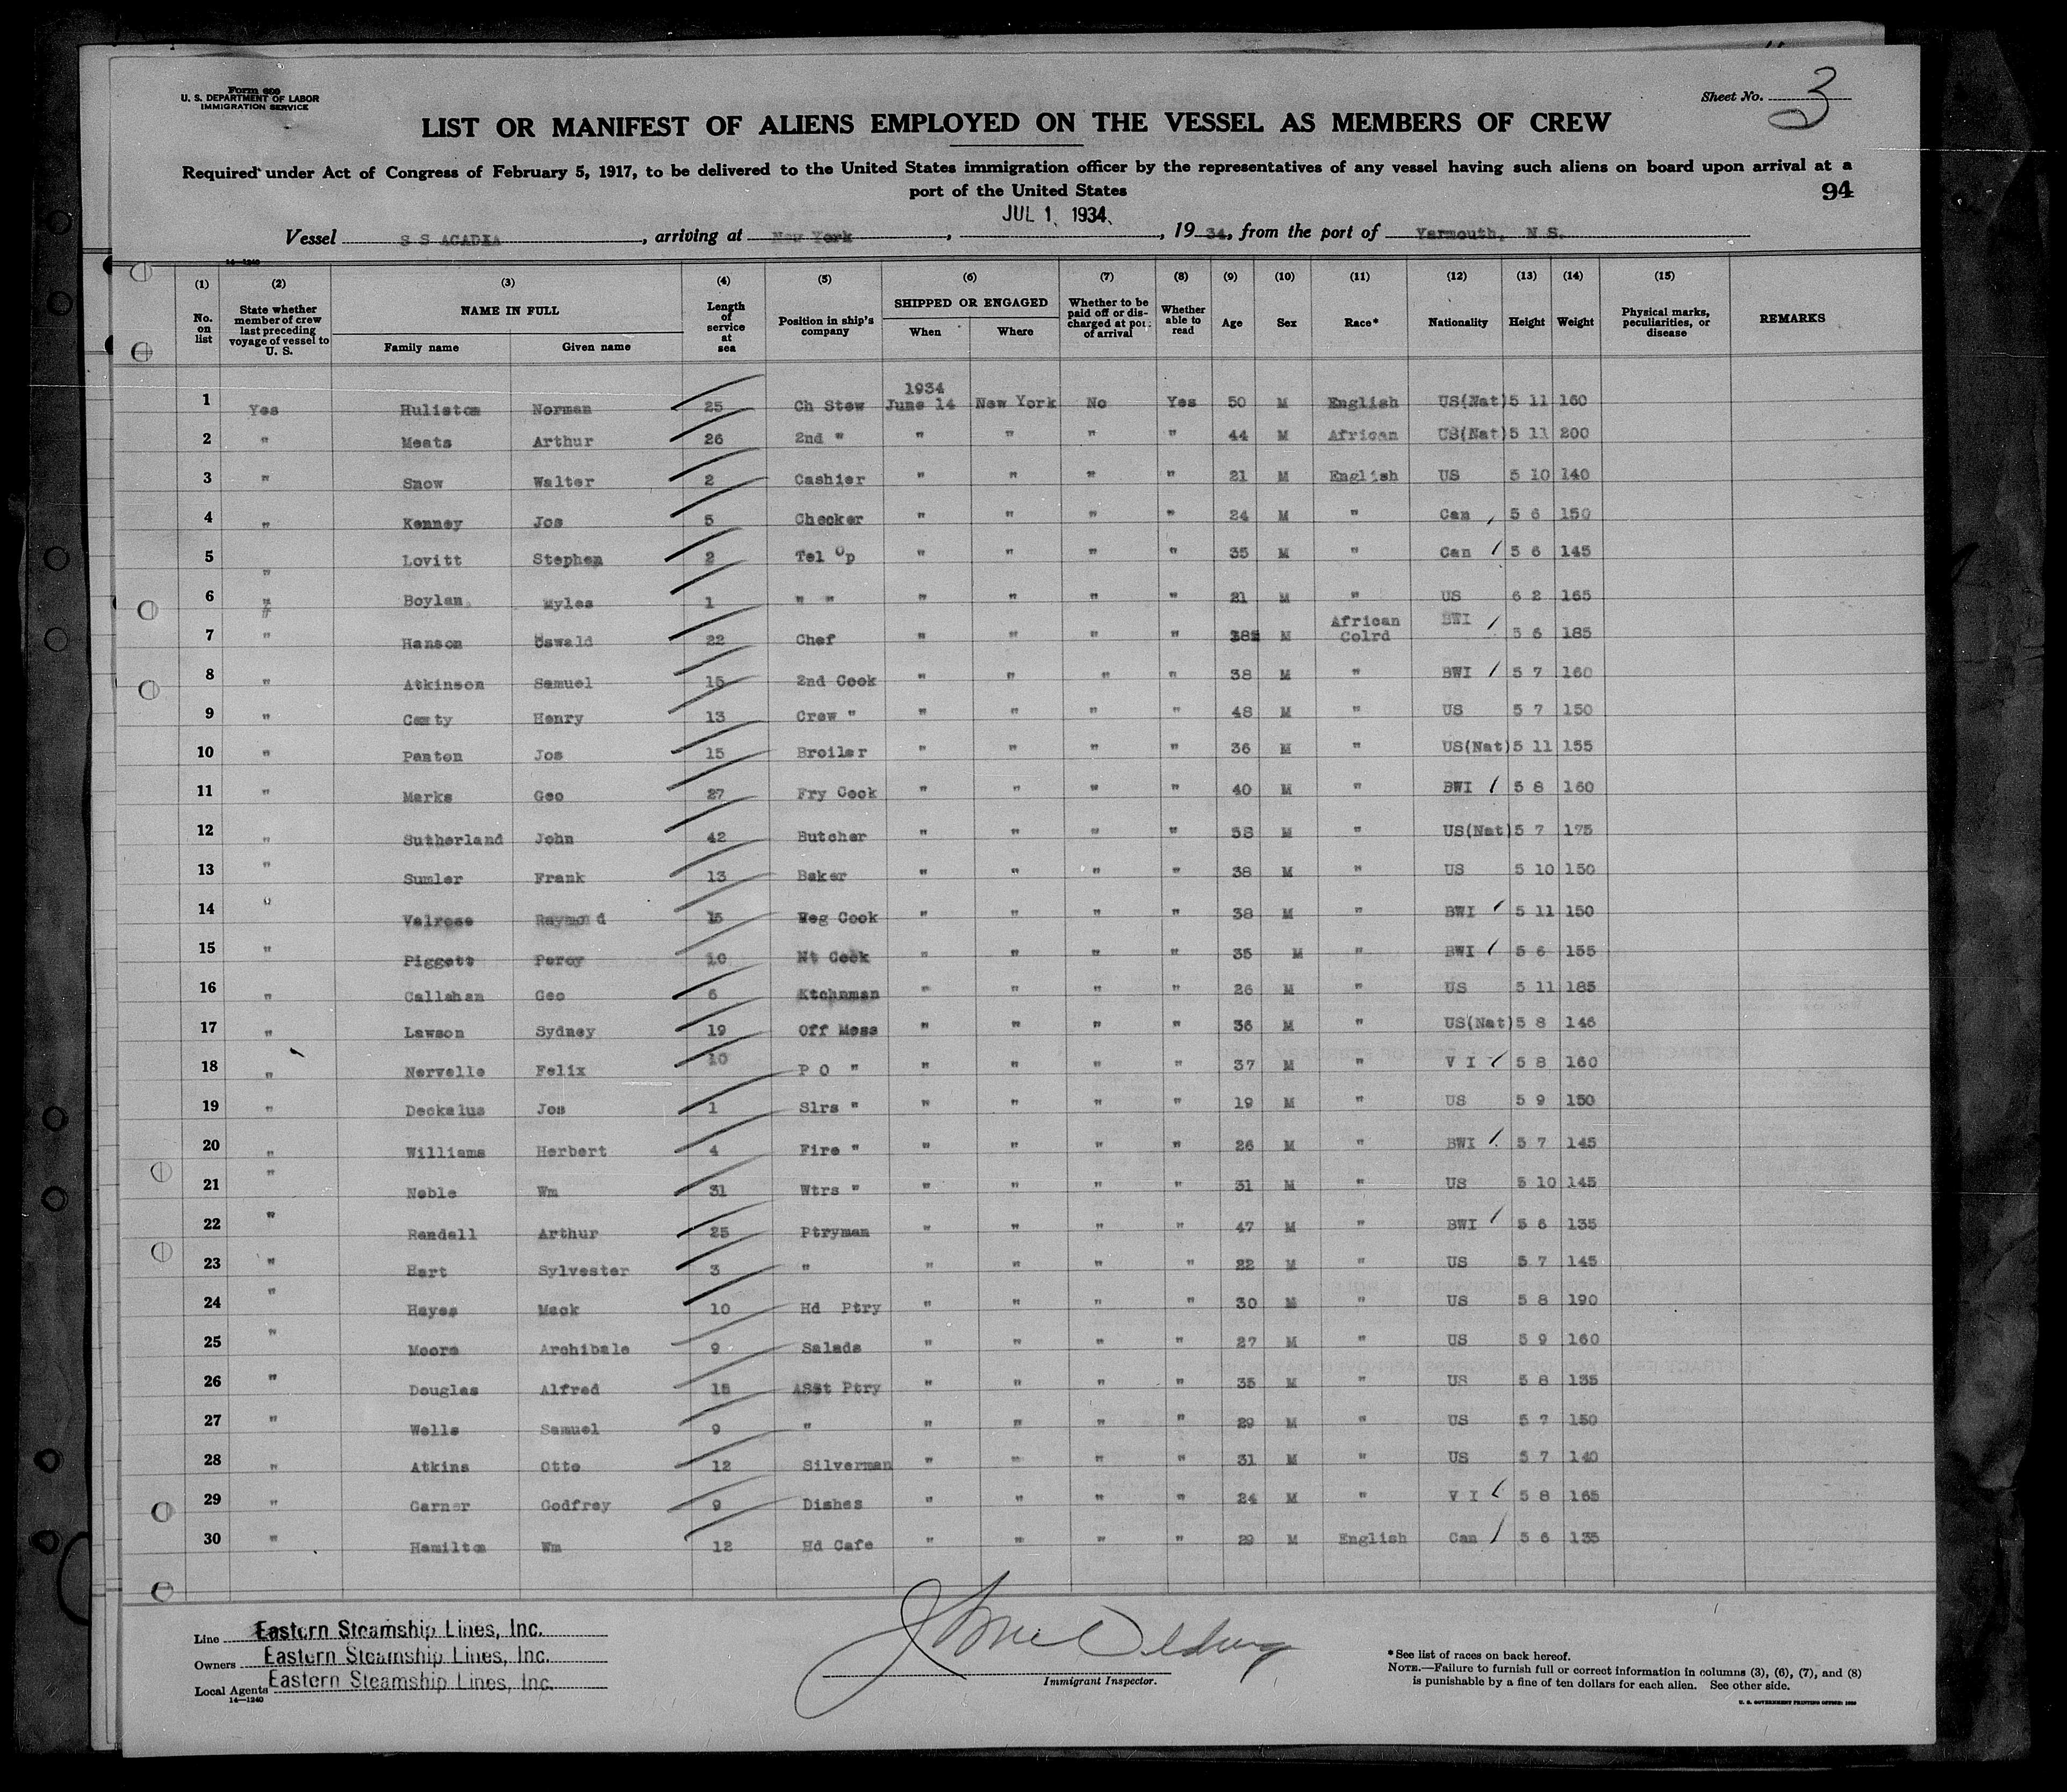 Form 680
U. S. DEPARTMENT OF LABOR
IMMIGRATION SERVICE
Sheet No. 3
LIST OR MANIFEST OF ALIENS EMPLOYED ON THE VESSEL AS MEMBERS OF CREW
Required under Act of Congress of February 5, 1917, to be delivered to the United States immigration officer by the representatives of any vessel having such aliens on board upon arrival at a
port of the United States
94
JUL 1 1934
Vessel S S ACADIA, arriving at New York, , 19 34, from the port of Yarmouth, N S.
14—1240
(1) (2) (3) (4) (5) (6) (7) (8) (9) (10) (11) (12) (13) (14) (15)
No. on list State whether member of crew last preceding voyage of vessel to U. S. NAME IN FULL Family name Given name Length of service at sea Position in ship's company SHIPPED OR ENGAGED When Where Whether to be paid off or discharged at port of arrival Whether able to read Age Sex Race* Nationality Height Weight Physical marks, peculiarities, or disease REMARKS
1934
1 Yes Huliston Norman 25 Ch Stew June 14 New York No Yes 50 M English US(Nat) 5 11 160
2 " Meats Arthur 26 2nd " " " " " 44 M African US(Nat) 5 11 200
3 " Snow Walter 2 Cashier " " " " 21 M English US 5 10 140
4 " Kenney Jos 5 Checker " " " " 24 M " Can 5 6 150
5 " Lovitt Stephen 2 Tel Op " " " " 35 M " Can 5 6 145
6 " Boylan Myles 1 " " " " " " 21 M " US 6 2 165
7 " Hanson Oswald 22 Chef " " " " 38 M African Colrd BWI 5 6 185
8 " Atkinson Samuel 15 2nd Cook " " " " 38 M " BWI 5 7 160
9 " Henry 13 Crew " " " " " 48 M " US 5 7 150
10 " Panton Jos 15 Broiler " " " " 36 M " US(Nat) 5 11 155
11 " Marks Geo 27 Fry Cook " " " " 40 M " BWI 5 8 160
12 " Sutherland John 42 Butcher " " " " 58 M " US(Nat) 5 7 175
13 " Sumler Frank 13 Baker " " " " 38 M " US 5 10 150
14 " Velrose Raymond 15 Veg Cook " " " " 38 M " BWI 5 11 150
15 " Piggett Percy 10 Nt Cook " " " " 35 M " BWI 5 6 155
16 " Callahan Geo 6 Ktchnman " " " " 26 M " US 5 11 185
17 " Lawson Sydney 19 Off Mess " " " " 36 M " US(Nat) 5 8 146
18 " Nervelle Felix 10 P O " " " " " 37 M " V I 5 8 160
19 " Deckalus Jos 1 Slrs " " " " " 19 M " US 5 9 150
20 " Williams Herbert 4 Fire " " " " " 26 M " BWI 5 7 145
21 " Noble Wm 31 Wtrs " " " " " 31 M " US 5 10 145
22 " Randall Arthur 25 Ptryman " " " " 47 M " BWI 5 6 135
23 " Hart Sylvester 3 " " " " " 22 M " US 5 7 145
24 " Hayes Mack 10 Hd Ptry " " " " 30 M " US 5 8 190
25 " Moore Archibale 9 Salads " " " " 27 M " US 5 9 160
26 " Douglas Alfred 15 ASst Ptry " " " " 35 M " US 5 8 135
27 " Wells Samuel 9 " " " " " 29 M " US 5 7 150
28 " Atkins Otto 12 Silverman " " " " 31 M " US 5 7 140
29 " Garner Godfrey 9 Dishes " " " " 24 M " V I 5 8 165
30 " Hamilton Wm 12 Hd Cafe " " " " 29 M English Can 5 6 135
Line Eastern Steamship Lines, Inc.
Owners Eastern Steamship Lines, Inc.
Local Agents Eastern Steamship Lines, Inc.
14—1240
Immigrant Inspector.
*See list of races on back hereof.
NOTE.—Failure to furnish full or correct information in columns (3), (6), (7), and (8)
is punishable by a fine of ten dollars for each alien. See other side.
U. S. GOVERNMENT PRINTING OFFICE